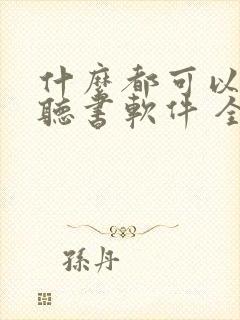 什麼都可以
聽書軟件 全
孫丹